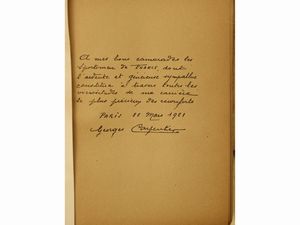 A mes bons camarades les
Sportsmen de France, dont
l'ardente et généreuse sympathie
constitue à travers toutes les
vicissitudes de ma carrière
le plus précieux des réconforts
PARIS. Mars 1921
Georges Carpentier